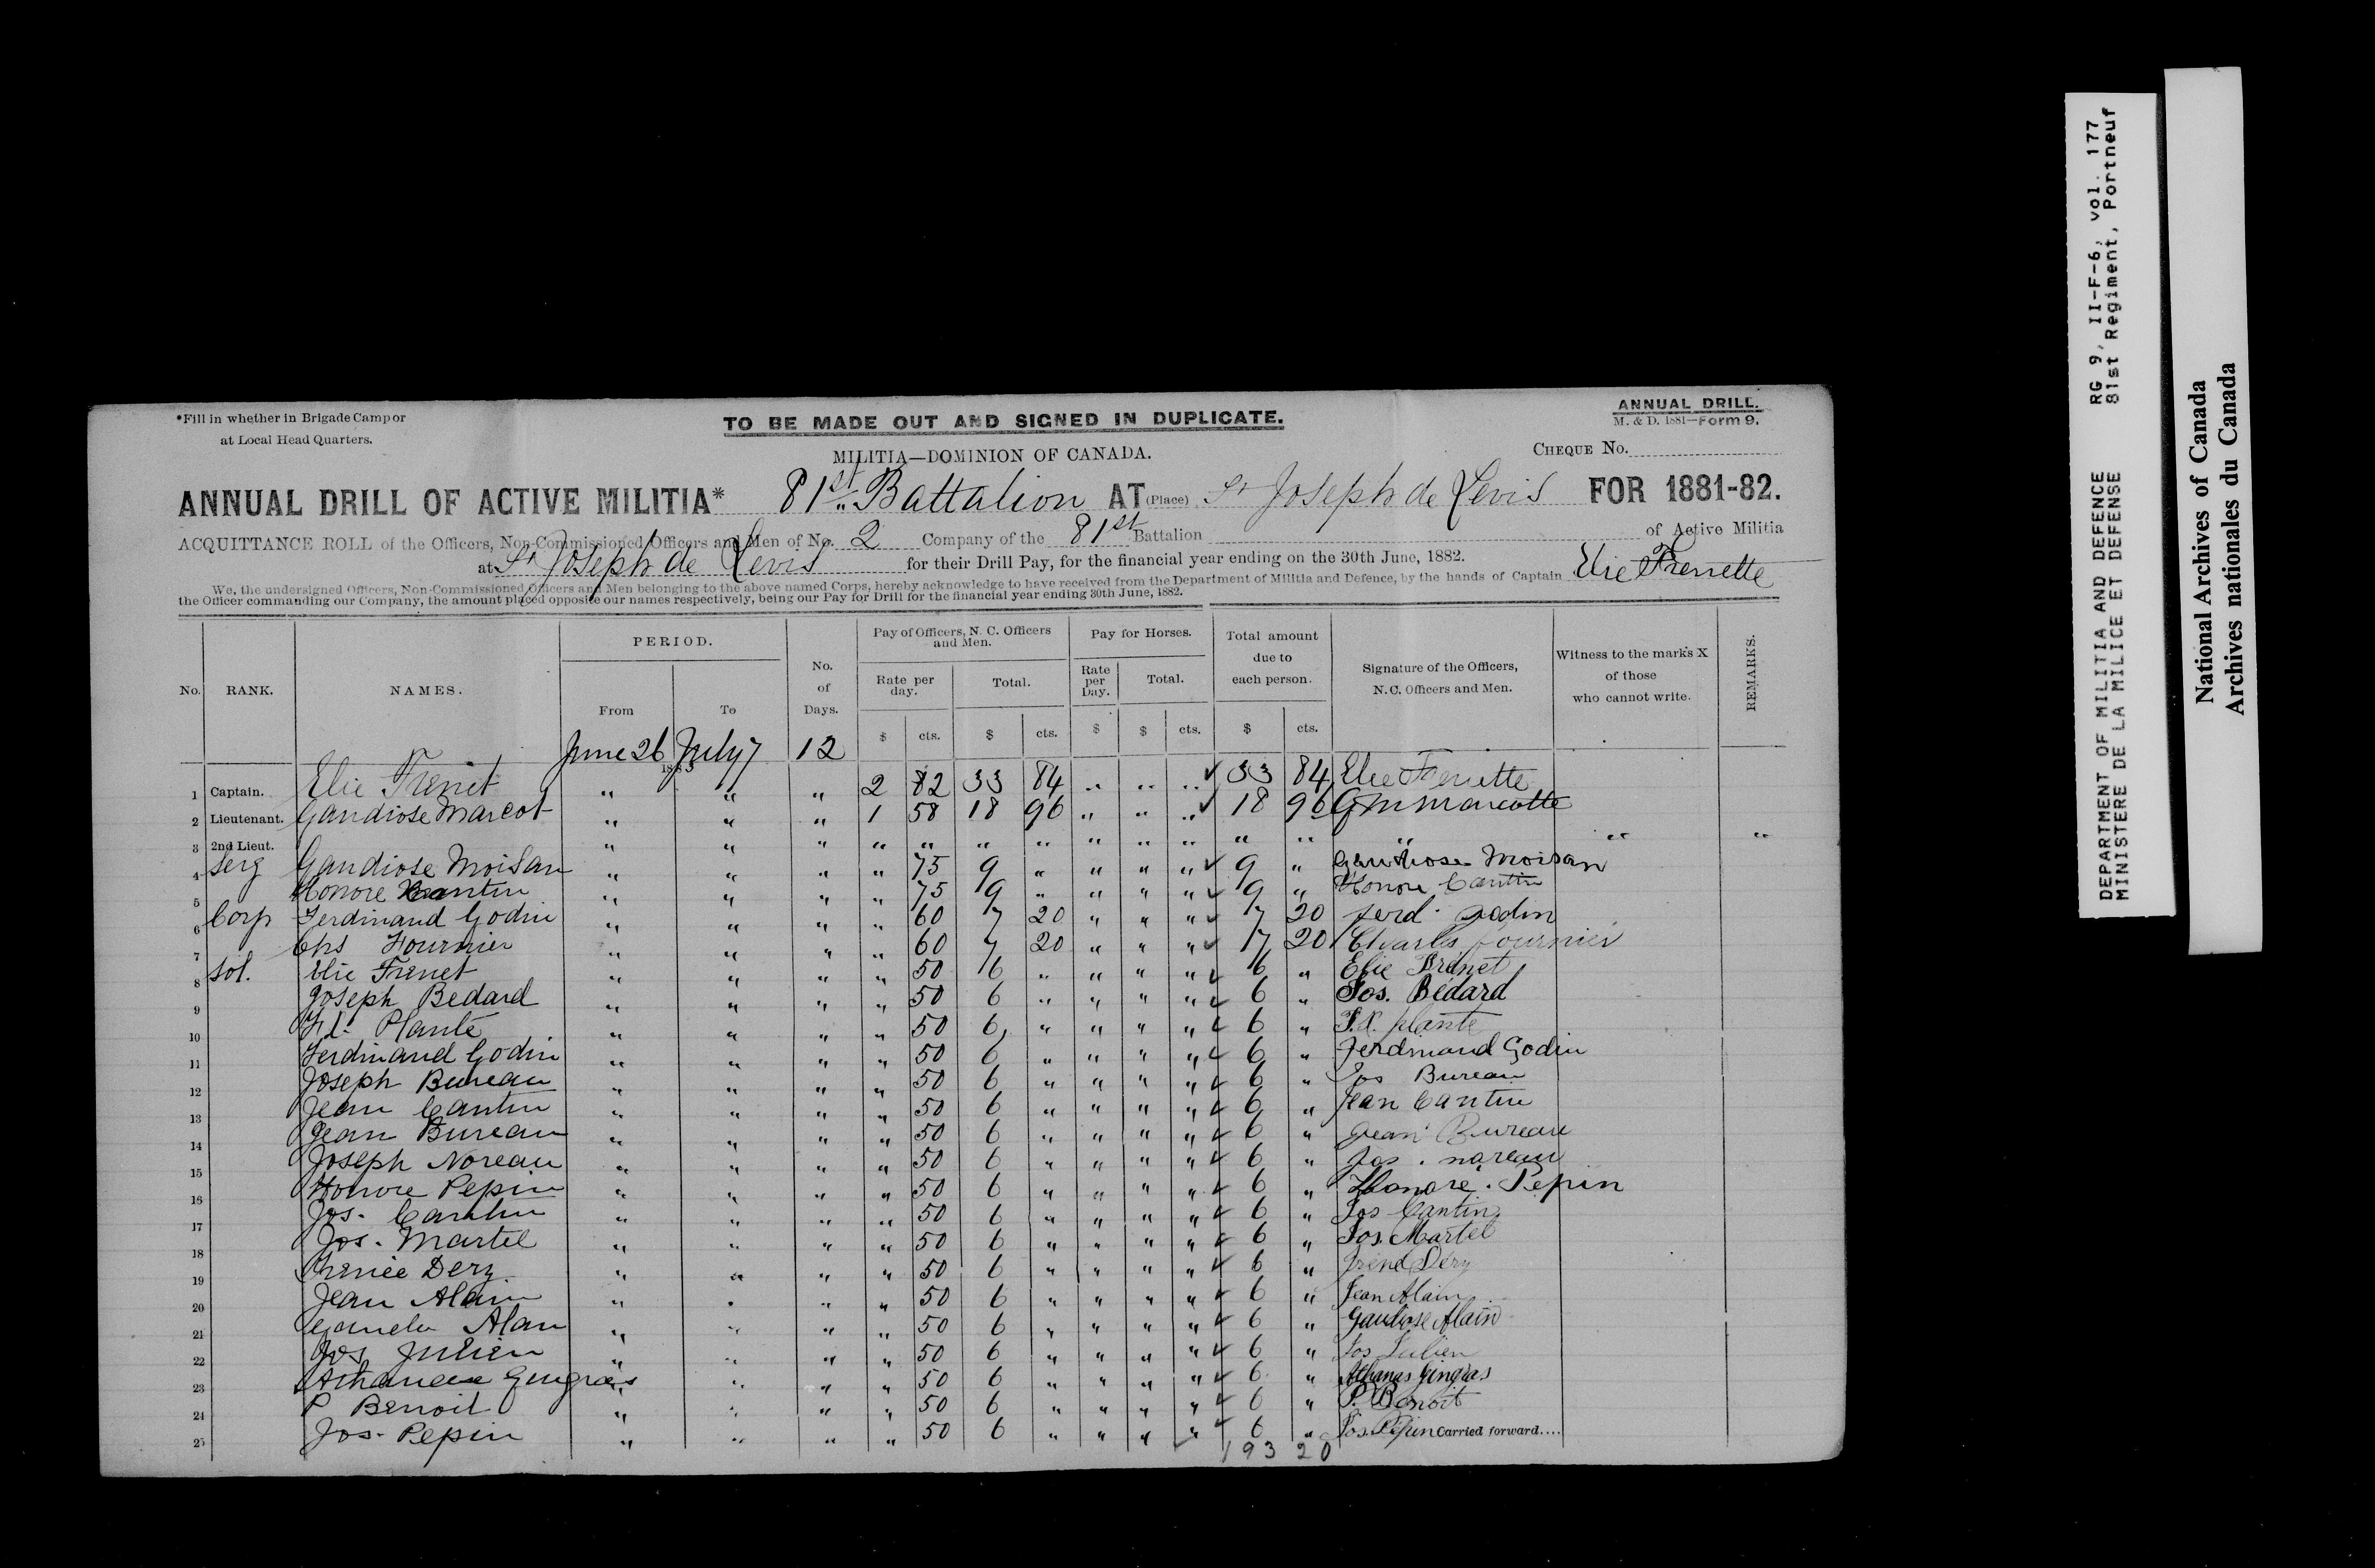 *Fill in whether in Brigade Camp or
at Local Head Quarters.
TO BE MADE OUT AND SIGNED IN DUPLICATE.
ANNUAL DRILL.
M. & D. 1881—Form 9.
MILITIA—DOMINION OF CANADA.
CHEQUE No.
ANNUAL DRILL OF ACTIVE MILITIA* 81st Battalion AT (Place) St Joseph de Levis FOR 1881-82.
ACQUITTANCE ROLL of the Officers, Non-Commissioned Officers and Men of No. 2 Company of the 81st Battalion of Active Militia
at St Joseph de Levis for their Drill Pay, for the financial year ending on the 30th June, 1882.
We, the undersigned Officers, Non-Commissioned Officers and Men belonging to the above named Corps, hereby acknowledge to have received from the Department of Militia and Defence, by the hands of Captain Elie Frenette
the Officer commanding our Company, the amount placed opposite our names respectively, being our Pay for Drill for the financial year ending 30th June, 1882.
No. RANK. NAMES. PERIOD. From To No. of Days. Pay of Officers, N. C. Officers and Men. Rate per day. Total. Pay for Horses. Rate per Day. Total. Total amount due to each person. Signature of the Officers, N. C. Officers and Men. Witness to the marks X of those who cannot write. REMARKS.
$ cts. $ cts. $ $ cts. $ cts.
June 26 July 7 12
1883
1 Captain. Elie Frenet " " " 2 82 33 84 " " " 33 84 Elie Frenette
2 Lieutenant. Gaudiose Marcot " " " 1 58 18 96 " " " 18 96 G M Marcotte
3 2nd Lieut. " " " " " " " " " " " " " " "
4 Serg Gaudiose Moisan " " " " 75 9 " " " " 9 " Gaudiose Moisan
5 Honore Cantin " " " " 75 9 " " " " 9 " Honore Cantin
6 Corp Ferdinand Godin " " " " 60 7 20 " " " 7 20 Ferd. Godin
7 Chs Fournier " " " " 60 7 20 " " " 7 20 Charles Fournier
8 Sol. Elie Frenet " " " " 50 6 " " " " 6 " Elie Frenet
9 Joseph Bedard " " " " 50 6 " " " " 6 " Jos. Bédard
10 Planté " " " " 50 6 " " " " 6 " F.X. plante
11 Ferdinand Godin " " " " 50 6 " " " " 6 " Ferdinand Godin
12 Joseph Bureau " " " " 50 6 " " " " 6 " Jos Bureau
13 Jean Cantin " " " " 50 6 " " " " 6 " Jean Cantin
14 Jean Bureau " " " " 50 6 " " " " 6 " Jean Bureau
15 Joseph Noreau " " " " 50 6 " " " " 6 " Jos. nareau
16 Honore Pepin " " " " 50 6 " " " " 6 " Honoré. Pepin
17 Jos. Cantin " " " " 50 6 " " " " 6 " Jos Cantin
18 Jos. Martel " " " " 50 6 " " " " 6 " Jos. Martel
19 Dery " " " " 50 6 " " " " 6 " Iréné Déry
20 Jean Alain " " " " 50 6 " " " " 6 " Jean Alain
21 Alain " " " " 50 6 " " " " 6 " Gaudiose Alain
22 Jos Julien " " " " 50 6 " " " " 6 " Jos Julien
23 Athanase Gingras " " " " 50 6 " " " " 6 " Athanas Gingras
24 P Benoit " " " " 50 6 " " " " 6 " P. Benoit
25 Jos. Pepin " " " " 50 6 " " " " 6 " Jos. Pepin Carried forward....
193 20
DEPARTMENT OF MILITIA AND DEFENCE RG 9, II-F-6, vol. 177
MINISTERE DE LA MILICE ET DEFENSE 81st Regiment, Portneuf
National Archives of Canada
Archives nationales du Canada